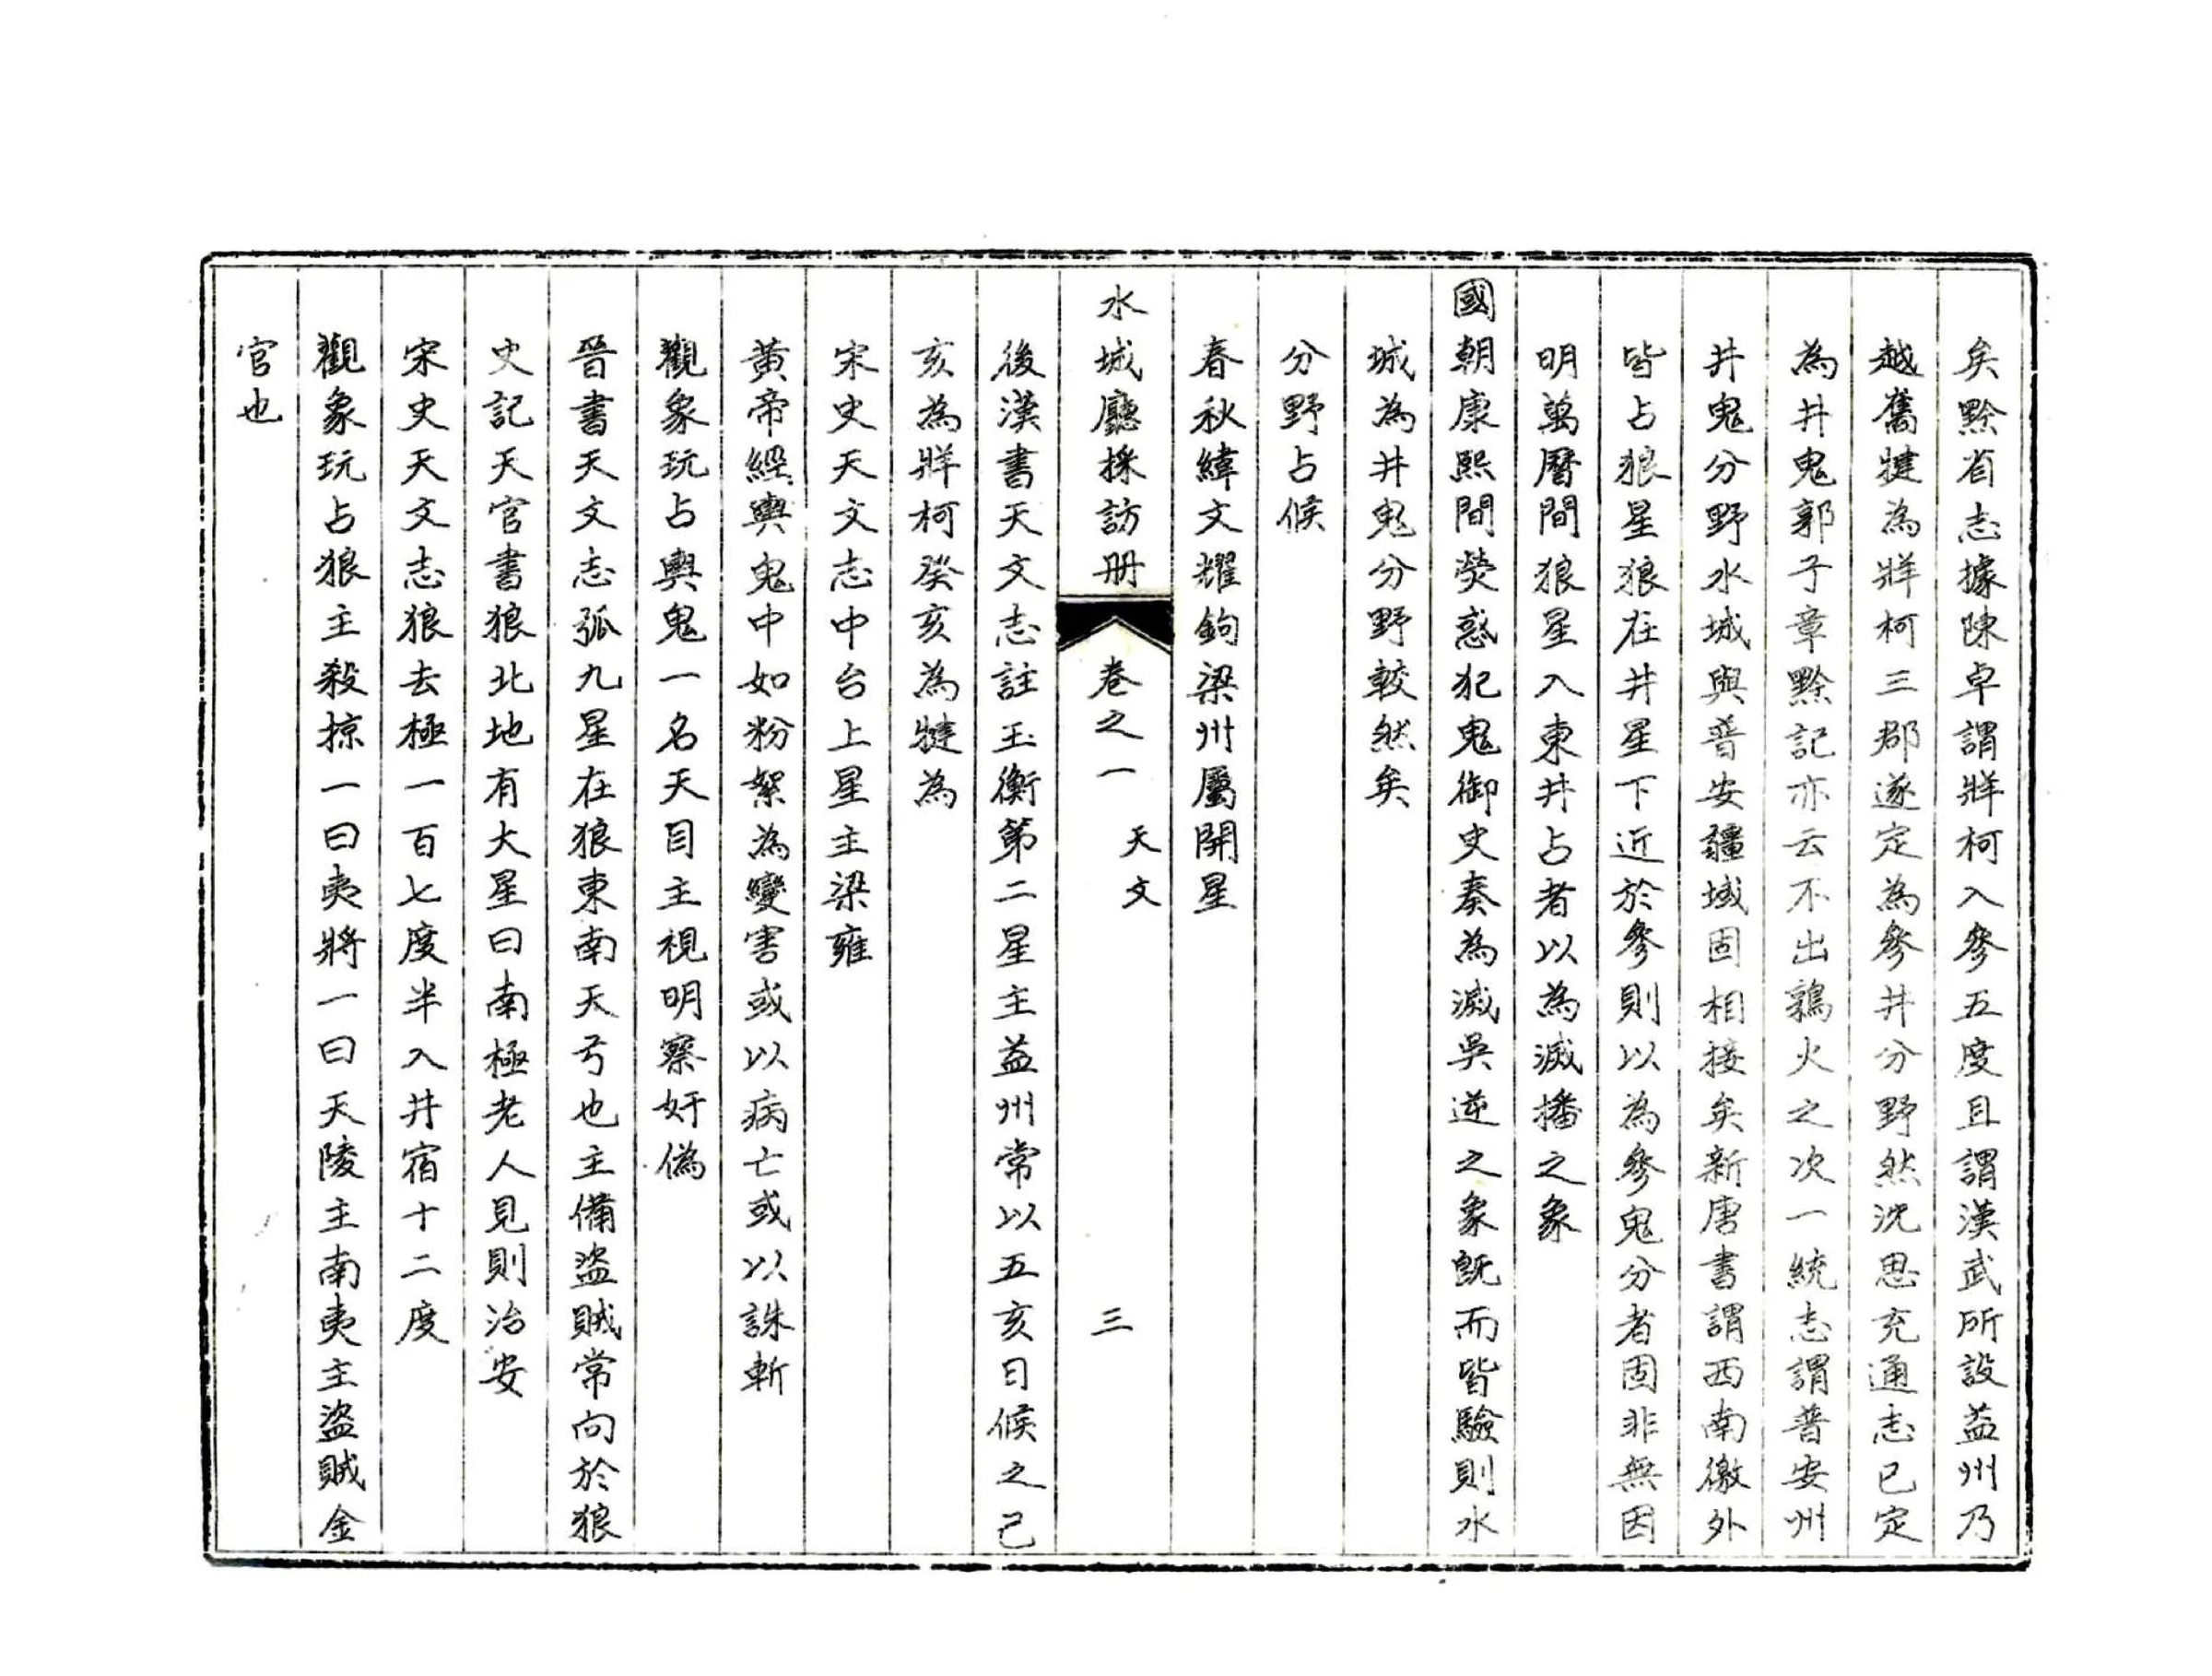 矣黔省志據陳卓謂牂柯入參五度且謂漢武所設益州乃
越巂犍為牂柯三郡遂定為參井分野然沈思充通志已定
為井鬼郭子章黔記亦云不出鶉火之次一統志謂普安州
井鬼分野水城與普安疆域固相接矣新唐書謂西南徼外
皆占狼星狼在井星下近於參則以為參鬼分者固非無因
明萬曆間狼星入東井占者以為滅播之象
國朝康熙間熒惑犯鬼御史奏為滅吳逆之象既而皆驗則水
城為井鬼分野較然矣
分野占候
春秋緯文耀鉤梁州屬開星
水城廳採訪冊 卷之一 天文 三
後漢書天文志註玉衡第二星主益州常以五亥日候之己
亥為牂柯癸亥為犍為
宋史天文志中台上星主梁雍
黃帝經輿鬼中如粉絮為變害或以病亡或以誅斬
觀象玩占輿鬼一名天目主視明察奸偽
晉書天文志弧九星在狼東南天弓也主備盜賊常向於狼
史記天官書狼北地有大星曰南極老人見則治安
宋史天文志狼去極一百七度半入井宿十二度
觀象玩占狼主殺掠一曰夷將一曰天陵主南夷主盜賊金
官也